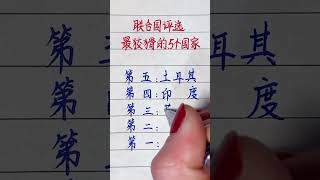 联合国评选
最狡猾的5个国家
第五:土耳其
第四:印 度
第三:
第二:
第一: